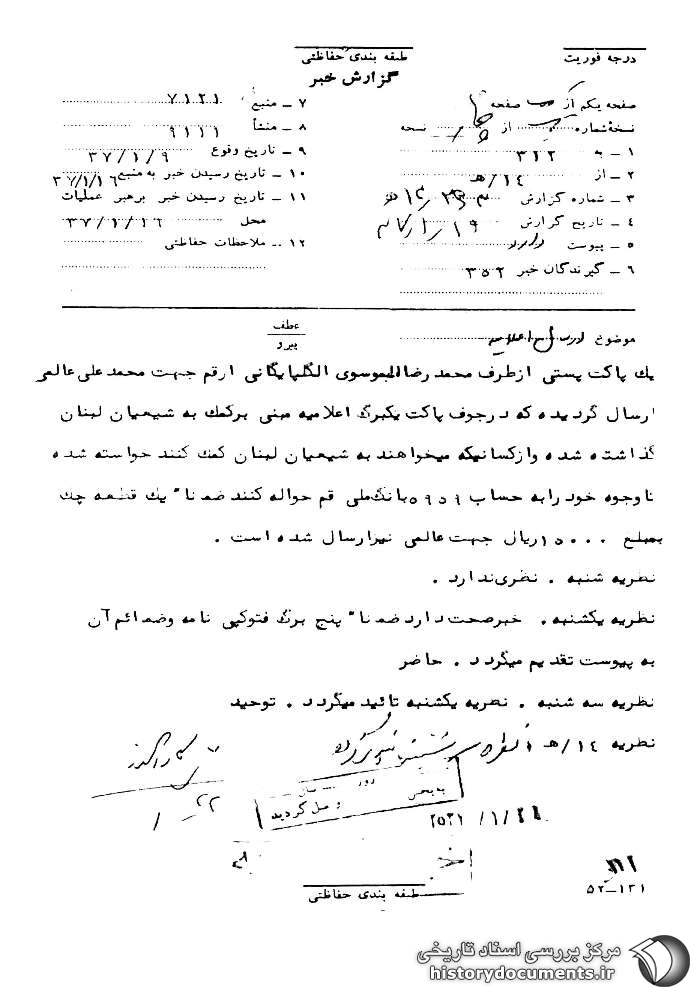 درجه فوریت
طبقه بندی حفاظتی
گزارش خبر
صفحه یکم از صفحه
نسخهٔ شماره از نسخه
۱ ـ به ۳۱۲
۲ ـ از ۱۴/ه
۳ ـ شماره گزارش
۴ ـ تاریخ گزارش ۳۷/۱/۱۹
۵ ـ پیوست دارد
۶ ـ گیرندگان خبر ۳۵۲
۷ ـ منبع ۷۱۲۱
۸ ـ منشأ ۹۱۱۱
۹ ـ تاریخ وقوع ۳۷/۱/۹
۱۰ ـ تاریخ رسیدن خبر به منبع ۳۷/۱/۱۶
۱۱ ـ تاریخ رسیدن خبر برهبر عملیات
محل ۳۷/۱/۱۶
۱۲ ـ ملاحظات حفاظتی
موضوع ارسال اعلامیه
عطف
پیرو
یك پاکت پستی ازطرف محمد رضاالموسوی الگلپایگانی ازقم جهت محمد علی عالمی
ارسال گردیده که درجوف پاکت یکبرگ اعلامیه مبنی برکمك به شیعیان لبنان
گذاشته شده وازکسانیکه میخواهند به شیعیان لبنان کمك کنند خواسته شده
تاوجوه خودرابه حساب ۵۹۵۹ بانك ملی قم حواله کنند ضمنا" یك قطعه چك
بمبلغ ۱۵۰۰۰ ریال جهت عالمی نیزارسال شده است .
نظریه شنبه . نظری ندارد .
نظریه یکشنبه . خبرصحت دارد ضمنا" پنج برگ فتوکپی نامه وضمائم آن
به پیوست تقدیم میگردد . حاضر
نظریه سه شنبه . نظریه یکشنبه تائید میگردد . توحید
نظریه ۱۴/ه
به بخش
روز
سال
وصل گردید
۲۵۳۷/۱/۲۱
۲۲
۱
طبقه بندی حفاظتی
۵۲-۱۳۱
مرکز بررسی اسناد تاریخی
historydocuments.ir